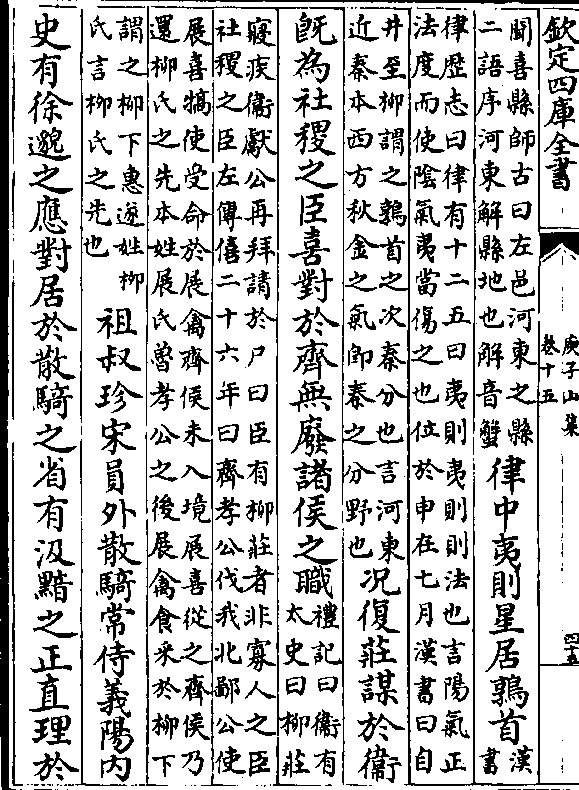 欽定四庫全書
庾子山集
卷十五
四十五
聞喜縣師古曰左邑河東之縣
二語序河東解縣地也解音蟹
律中夷則星居鶉首
漢書
律歷志曰律有十二五曰夷則夷則則法也言陽氣正
法度而使陰氣夷當傷之也位於申在七月漢書曰自
井至柳謂之鶉首之次秦分也言河東
近秦本西方秋金之氣即秦之分野也
況復莊謀於衞
既為社稷之臣喜對於齊無廢諸侯之職
禮記曰衞有
太史曰柳莊
寢疾衞獻公再拜請於尸曰臣有柳莊者非寡人之臣
社稷之臣左傳僖二十六年曰齊孝公伐我北鄙公使
展喜犒使受命於展禽齊侯未入境展喜從之齊侯乃
還柳氏之先本姓展氏魯孝公之後展禽食采於柳下
謂之柳下惠遂姓柳
氏言柳氏之先也
祖叔珍宋員外散騎常侍義陽内
史有徐邈之應對居於散騎之省有汲黯之正直理於